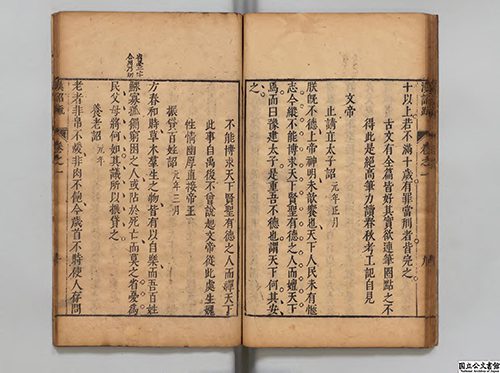 十以上若不滿十歲有罪當刑者皆完之
古文有全篇皆好其實欲連筆圈點之不
得此是絕高筆力讀春秋考工記自見
文帝
止請立太子詔 元年正月
朕既不德上帝神明未歆饗也天下人民未有愜
志今縱不能博求天下賢聖有德之人而嬗天下
焉而曰豫建太子是重吾不德也謂天下何其安
之
不能博求天下賢聖有德之人而禪天下
此事自禹後不曾說起文帝從此處生
性情幽厚直接帝王
振貸百姓詔 元年三月
方春和時草木羣生之物皆有以自樂而吾百姓
鰥寡孤獨窮困之人或阽於死亡而莫之省憂為
民父母將何如其議所以振貸之
養老詔 元年
老者非帛不煖非肉不飽今歲首不時使人存問
卷之一
卷之一
国立公文書館
National Archives of Japan